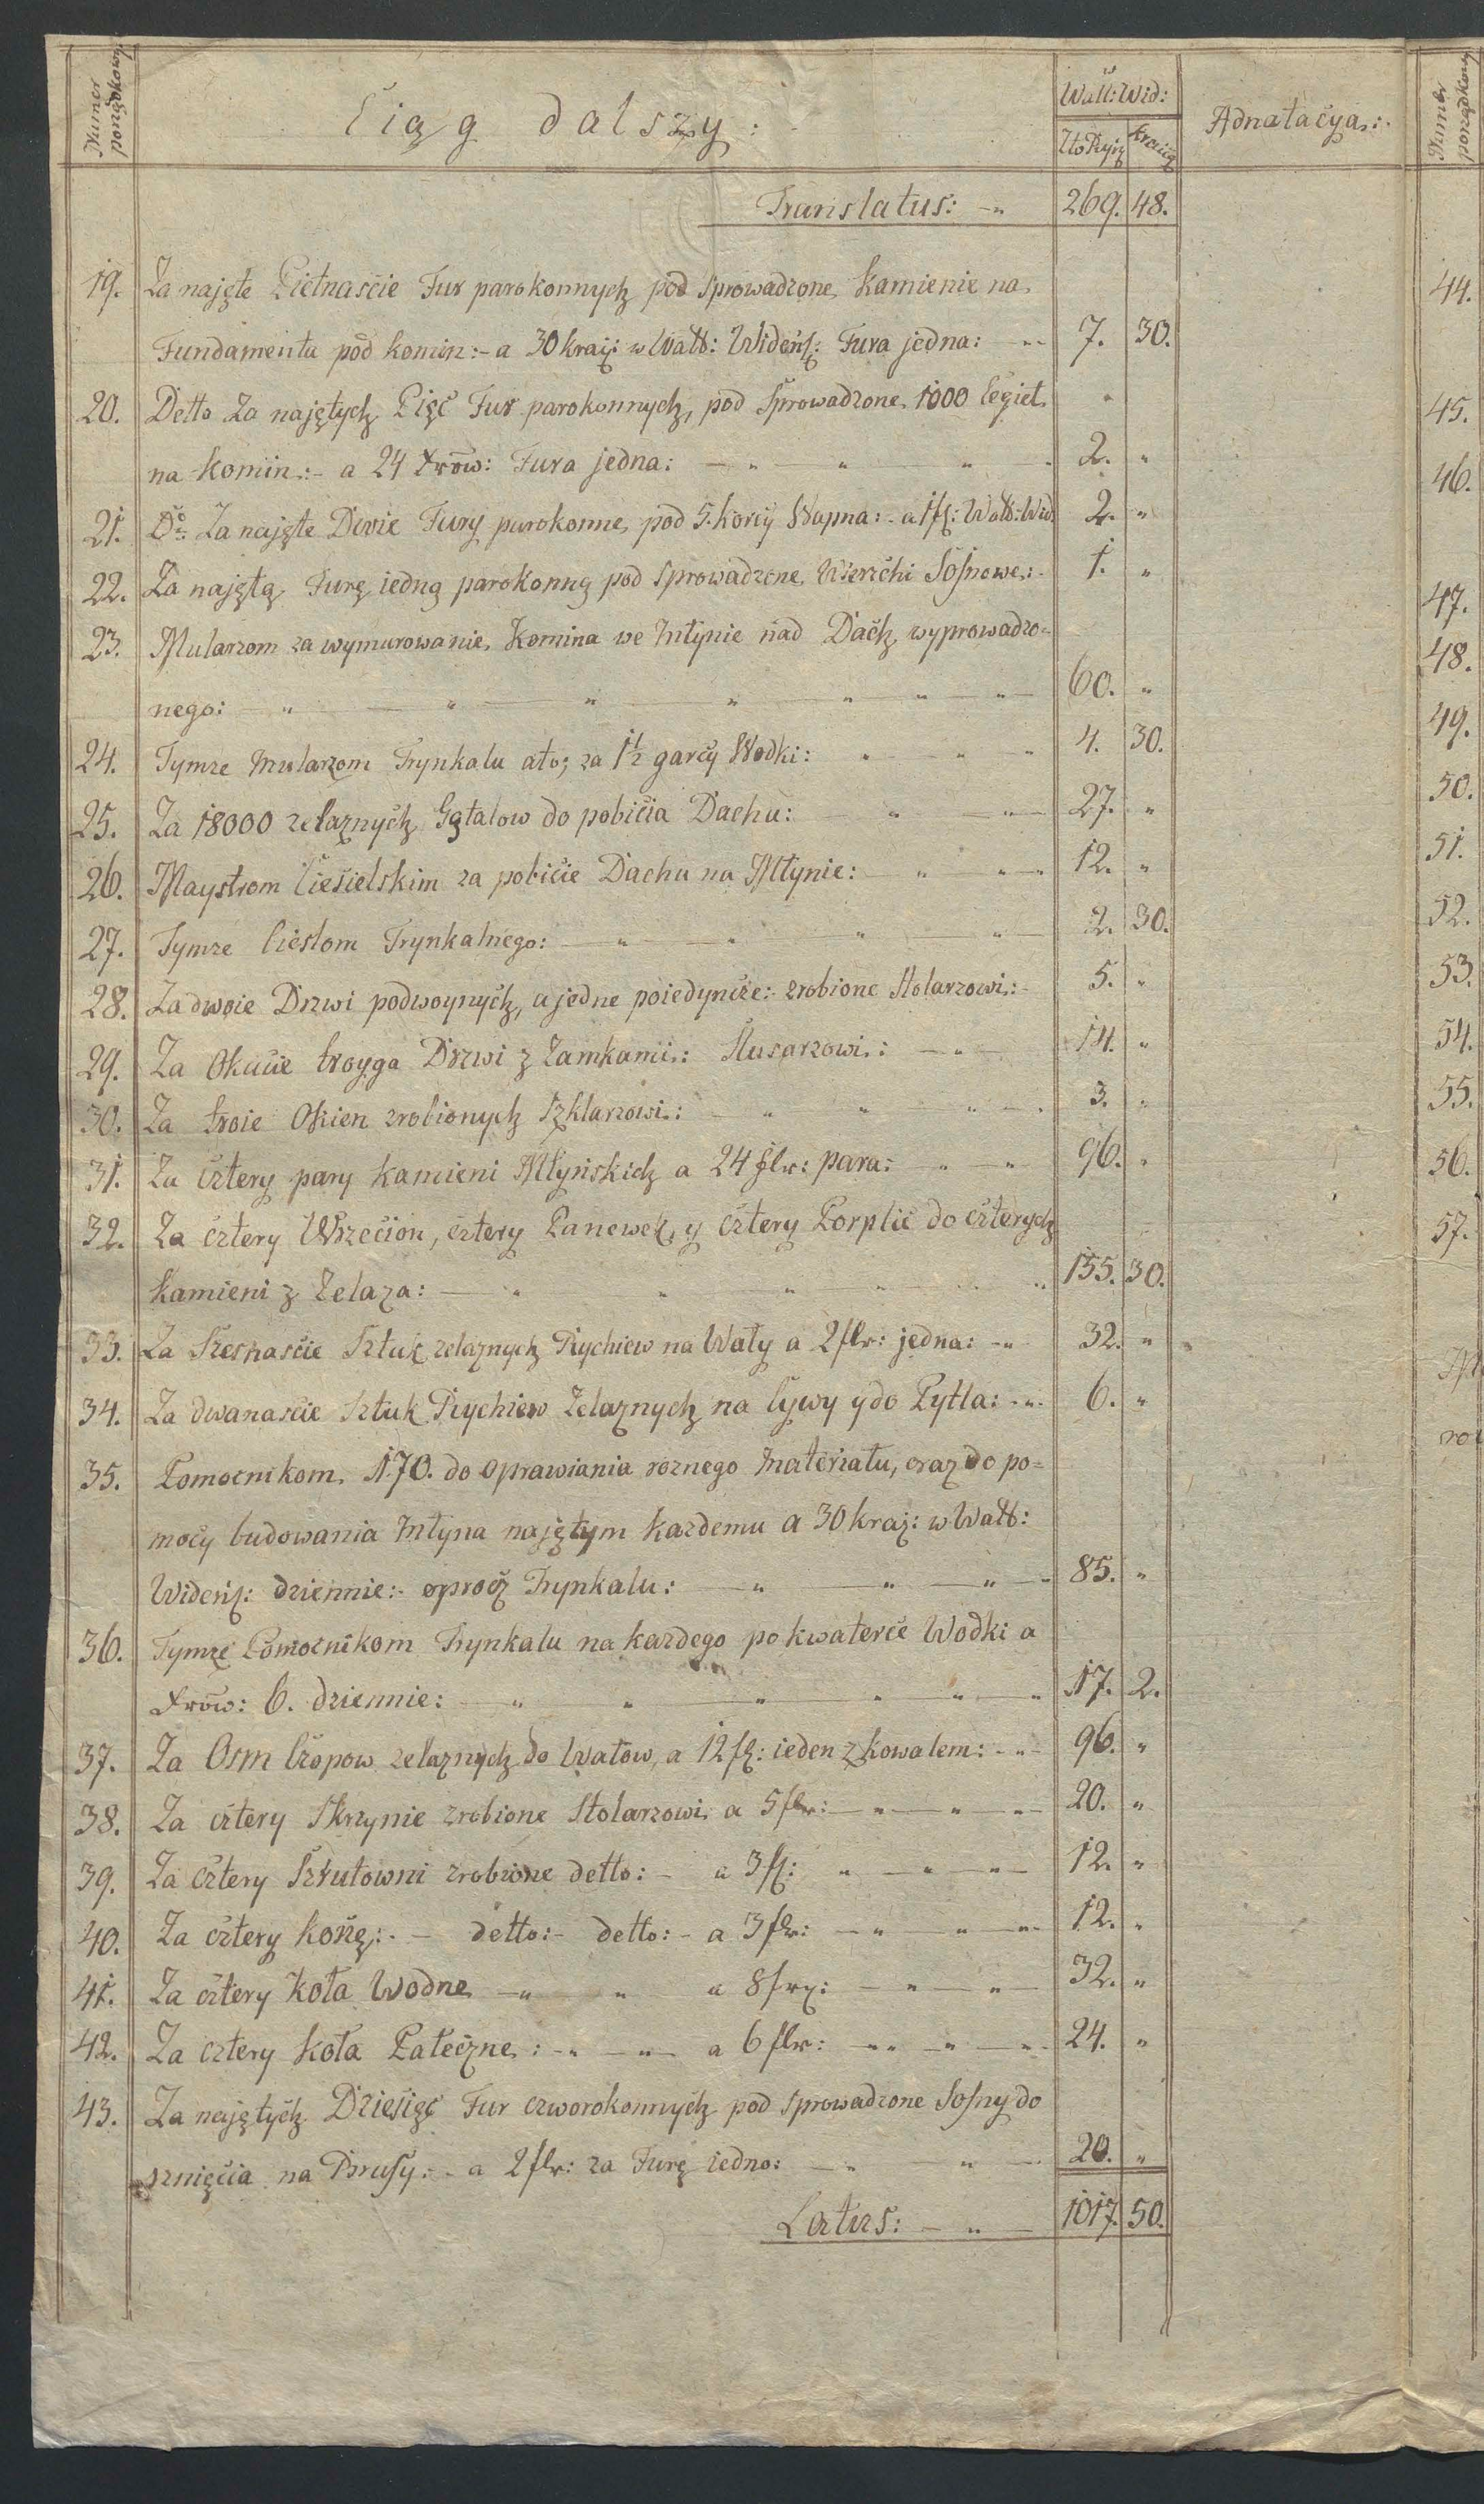 Numer porządkowy
Ciąg dalszy:
Wall: Wid:
Adnatacya:
Numer porządkowy
Translatus: 269. 48.
19. Za najęte Pietnascie Fur parokonnych pod sprowadzone Kamienie na
Fundamenta pod komin:- a 30 kraj: w Wall: Wideńs: Fura jedna: 7. 30.
20. Detto Za najętych Pięć Fur parokonnych, pod sprowadzone 1000 Cegieł "
na Komin:- a 24 Xrow: Fura jedna: 2. "
21. Do Za najęte Dwie Fury parokonne, pod 5. korcy Wapna: - a 1 fl: Wall: Wid 2. "
22. Za najętą Furę iedną parokonną pod sprowadzone Wierzchi Sosnowe: 1. "
23. Mularzom za wymurowanie Komina we Młynie nad Dach wyprowadzo=
nego: 60. "
24. Tymze Mularzom Trynkalu ato; za 1½ garcy Wodki: 4. 30.
25. Za 18000 zelaznych Gątalow do pobicia Dachu: 27. "
26. Maystrom Ciesielskim za pobicie Dachu na Młynie: 12. "
27. Tymze Cieslom Trynkalnego: 2. 30.
28. Za dwoie Drzwi podwoynych, a jedne poiedyncze:- zrobione Stolarzowi: 5. "
29. Za Okucie troyga Drzwi z Zamkami: Slusarzowi: 14. "
30. Za troie Okien zrobionych Szklarzowi: 3. "
31. Za cztery pary Kamieni Młyńskich a 24 flr: para: 96. "
32. Za cztery Wrzecion, cztery Panewek, y cztery Porplic do czterych
Kamieni z Zelaza: 155. 30.
33. Za Szesnascie Sztuk zelaznych Rychiew na Wały a 2 flr: jedna: 32. "
34. Za dwanascie Sztuk Rychiew Zelaznych na Cywy y do Pytla: 6. "
35. Pomocnikom 170. do oprawiania roznego Materiału, oraz do po=
mocy budowania Młyna najętym Kazdemu a 30 kraj: w Wall:
Wideńs: dziennie:- oprocz Trynkalu: 85. "
36. Tymze Pomocnikom Trynkalu na kazdego po kwaterce Wodki a
Xrow: 6. dziennie: 17. 2.
37. Za Osm Czopow zelaznych do Wałow, a 12 fl: ieden z kowalem: 96. "
38. Za cztery Skrzynie zrobione Stolarzowi a 5 flr: 20. "
39. Za cztery Szrutowni zrobione detto: - a 3 fl: 12. "
40. Za cztery Koszę: - detto:- detto:- a 3 flr: 12. "
41. Za cztery Koła Wodne a 8 flr: 32. "
42. Za cztery Koła Pateczne: a 6 flr: 24. "
43. Za najętych Dziesięć Fur czworokonnych pod sprowadzone Sosny do
rznięcia na Brusy: - a 2 flr: za Furę iedno: 20. "
Latus: 1017. 50.
44.
45.
46.
47.
48.
49.
50.
51.
52.
53.
54.
55.
56.
57.